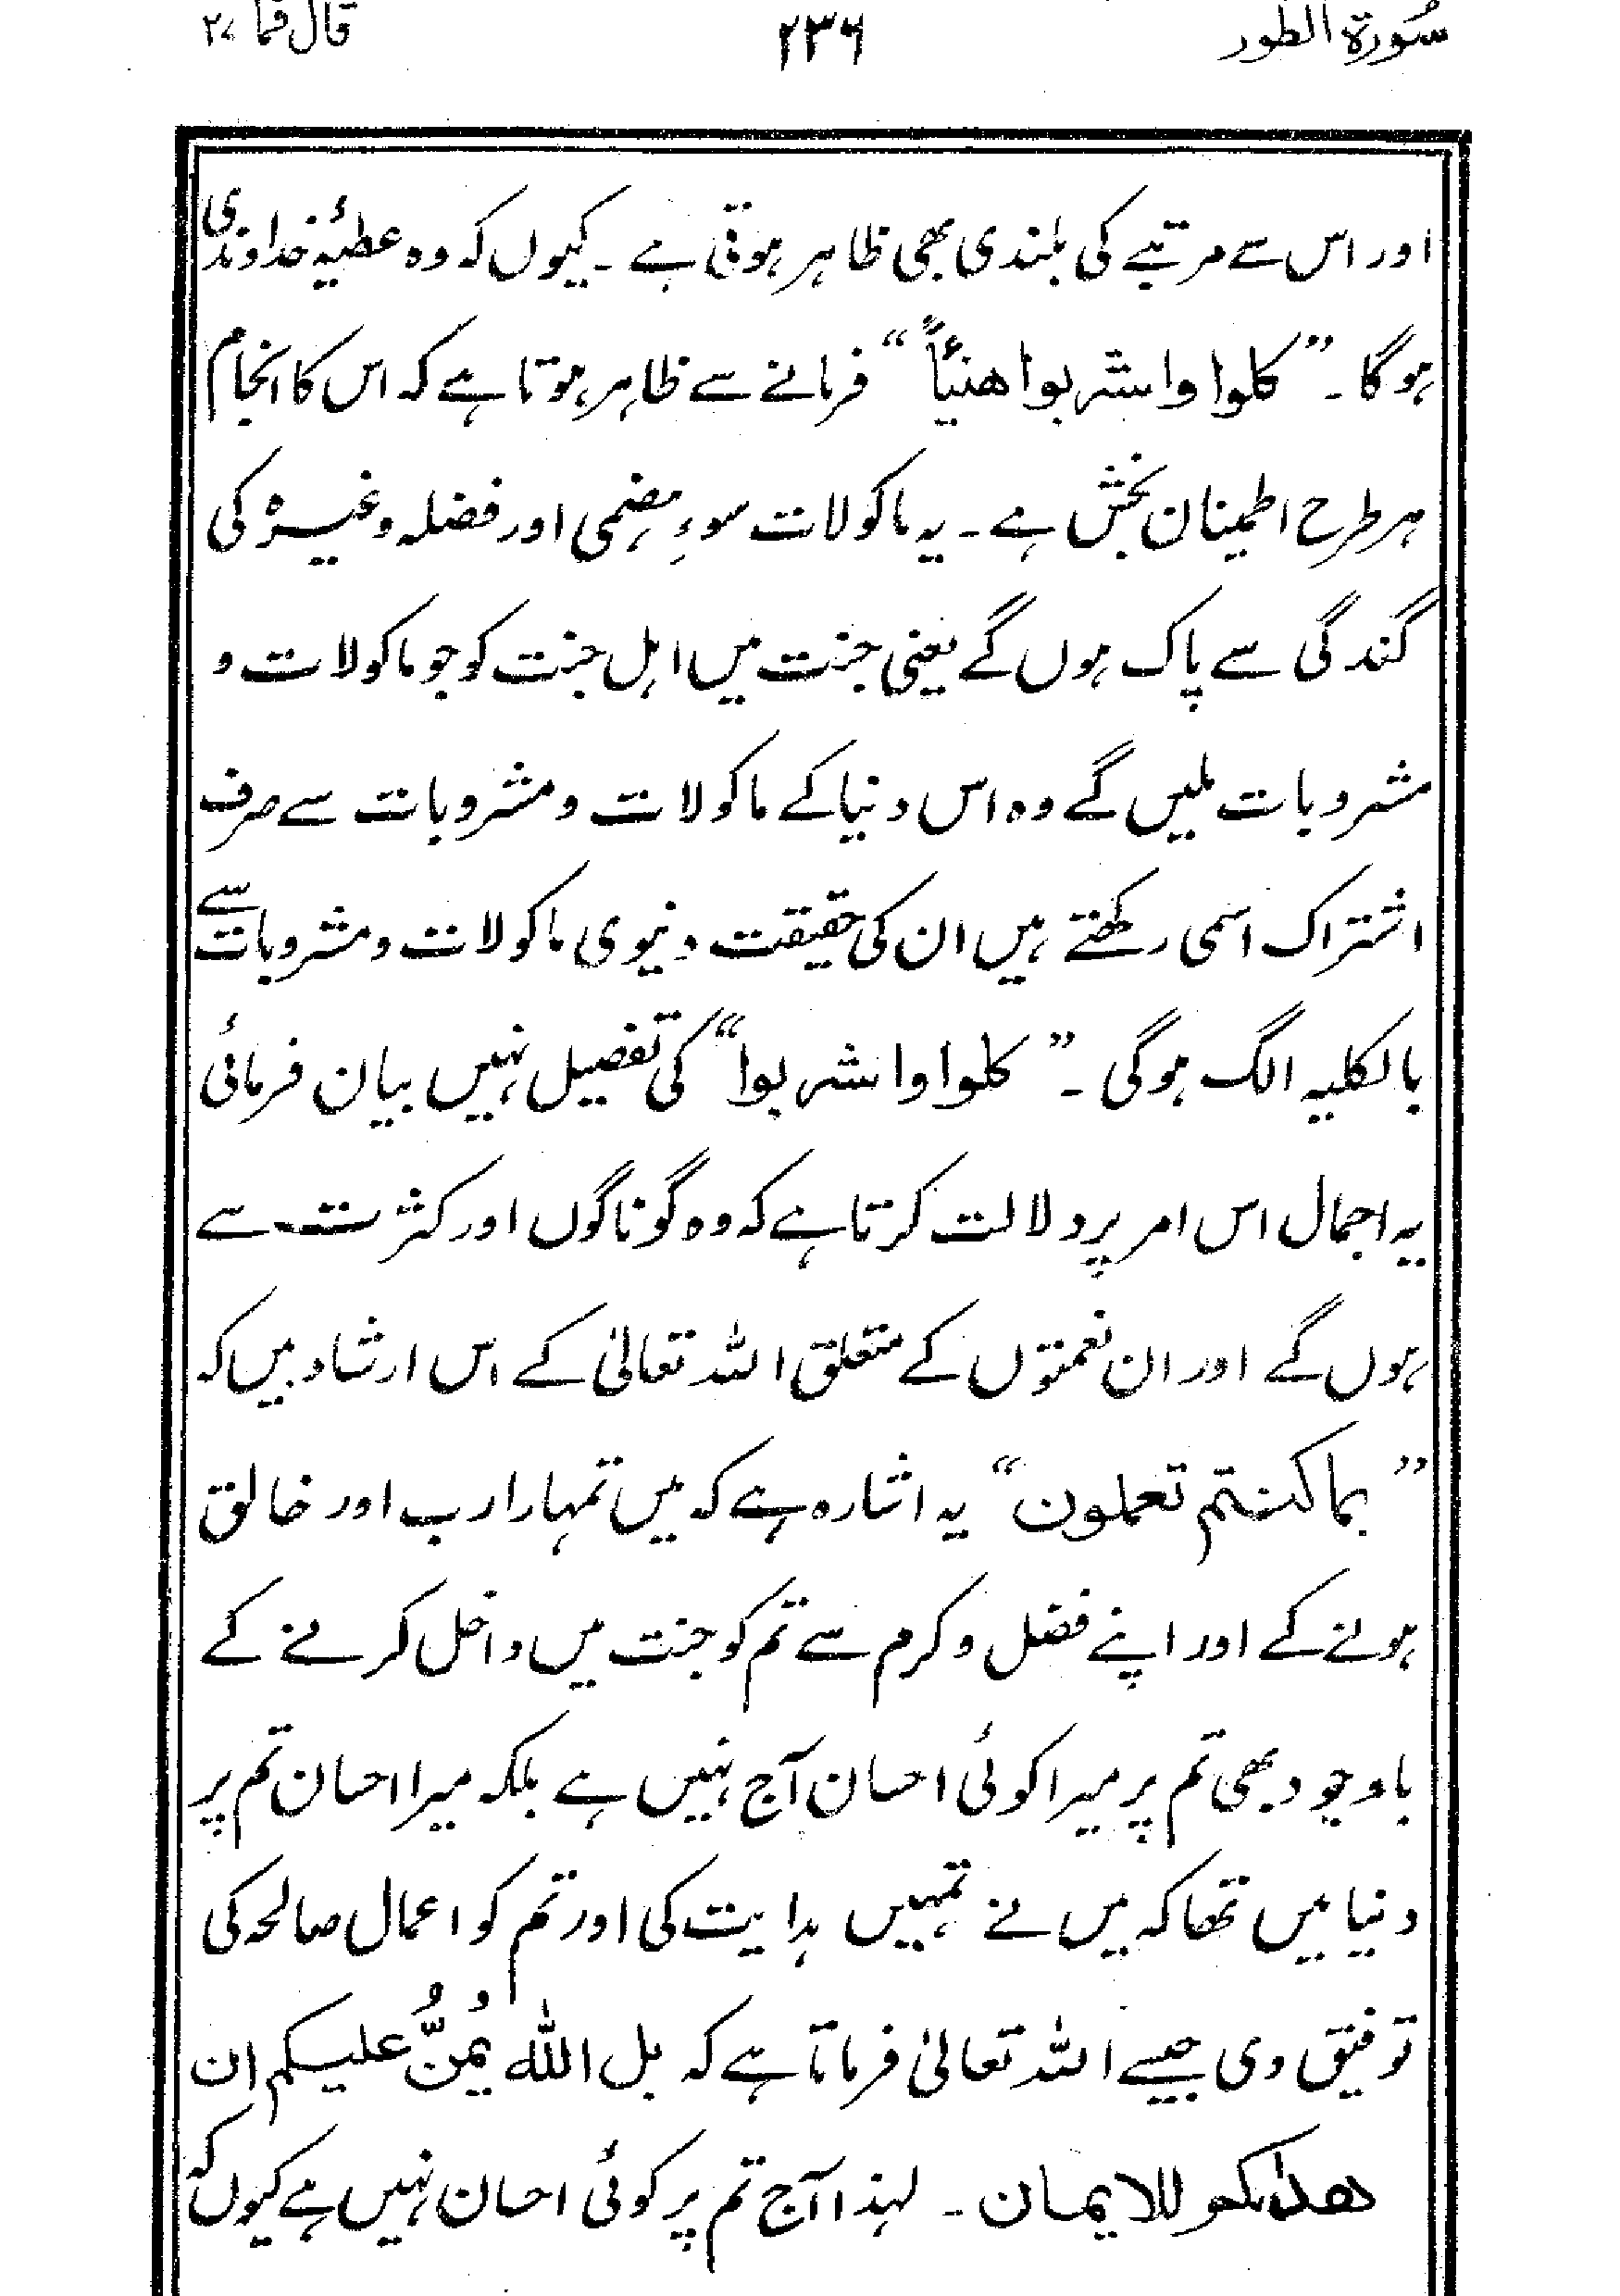 سُورة الطور ۲۳۶ قال فما ۲۷
اور اس سے مرتبے کی بلندی بھی ظاہر ہوتی ہے ۔ کیوں کہ وہ عطیۂ خداوندی
ہوگا ۔ ”کلوا واشربوا ھنیئاً“ فرمانے سے ظاہر ہوتا ہے کہ اس کا انجام
ہر طرح اطمینان بخش ہے ۔ یہ ماکولات سوءِ ہضمی اور فضلہ وغیرہ کی
گندگی سے پاک ہوں گے یعنی جنت میں اہل جنت کو جو ماکولات و
مشروبات ملیں گے وہ اس دنیا کے ماکولات و مشروبات سے صرف
اشتراک اسمی رکھتے ہیں ان کی حقیقت دنیوی ماکولات و مشروبات سے
بالکلیہ الگ ہوگی ۔ ”کلوا واشربوا“ کی تفصیل نہیں بیان فرمائی
یہ اجمال اس امر پر دلالت کرتا ہے کہ وہ گوناگوں اور کثرت سے
ہوں گے اور ان نعمتوں کے متعلق اللہ تعالیٰ کے اس ارشاد میں کہ
”بما کنتم تعملون“ یہ اشارہ ہے کہ میں تمہارا رب اور خالق
ہونے کے اور اپنے فضل و کرم سے تم کو جنت میں داخل کرنے کے
باوجود بھی تم پر میرا کوئی احسان آج نہیں ہے بلکہ میرا احسان تم پر
دنیا میں تھا کہ میں نے تمہیں ہدایت کی اور تم کو اعمال صالحہ کی
توفیق دی جیسے اللہ تعالیٰ فرماتا ہے کہ بل اللہ یُمنُّ علیکم ان
ھداکم للایمان ۔ لہذا آج تم پر کوئی احسان نہیں ہے کیوں کہ